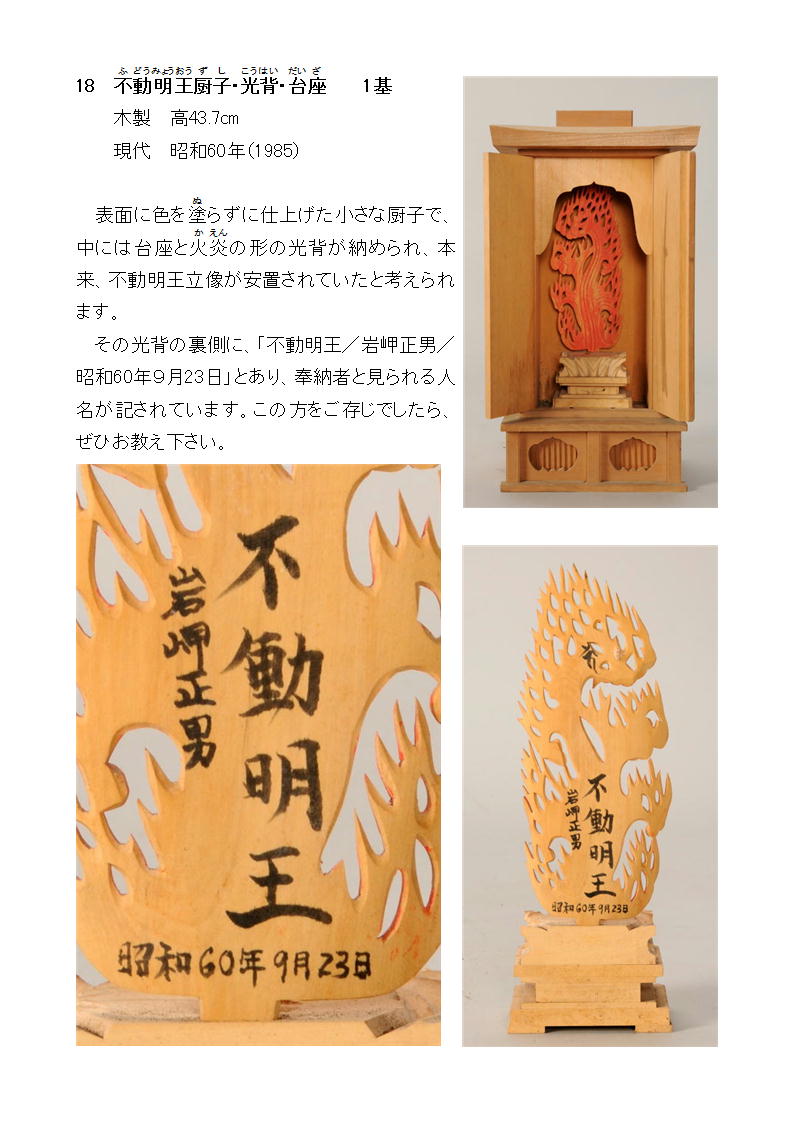 18 不動明王厨子・光背・台座 1基
ふどうみょうおうずし こうはい だいざ
木製 高43.7cm
現代 昭和60年(1985)
表面に色を塗らずに仕上げた小さな厨子で、
ぬ
中には台座と火炎の形の光背が納められ、本
かえん
来、不動明王立像が安置されていたと考えられ
ます。
その光背の裏側に、「不動明王／岩岬正男／
昭和60年９月23日」とあり、奉納者と見られる人
名が記されています。この方をご存じでしたら、
ぜひお教え下さい。
不動明王
岩岬正男
昭和60年9月23日
不動明王
岩岬正男
昭和60年9月23日